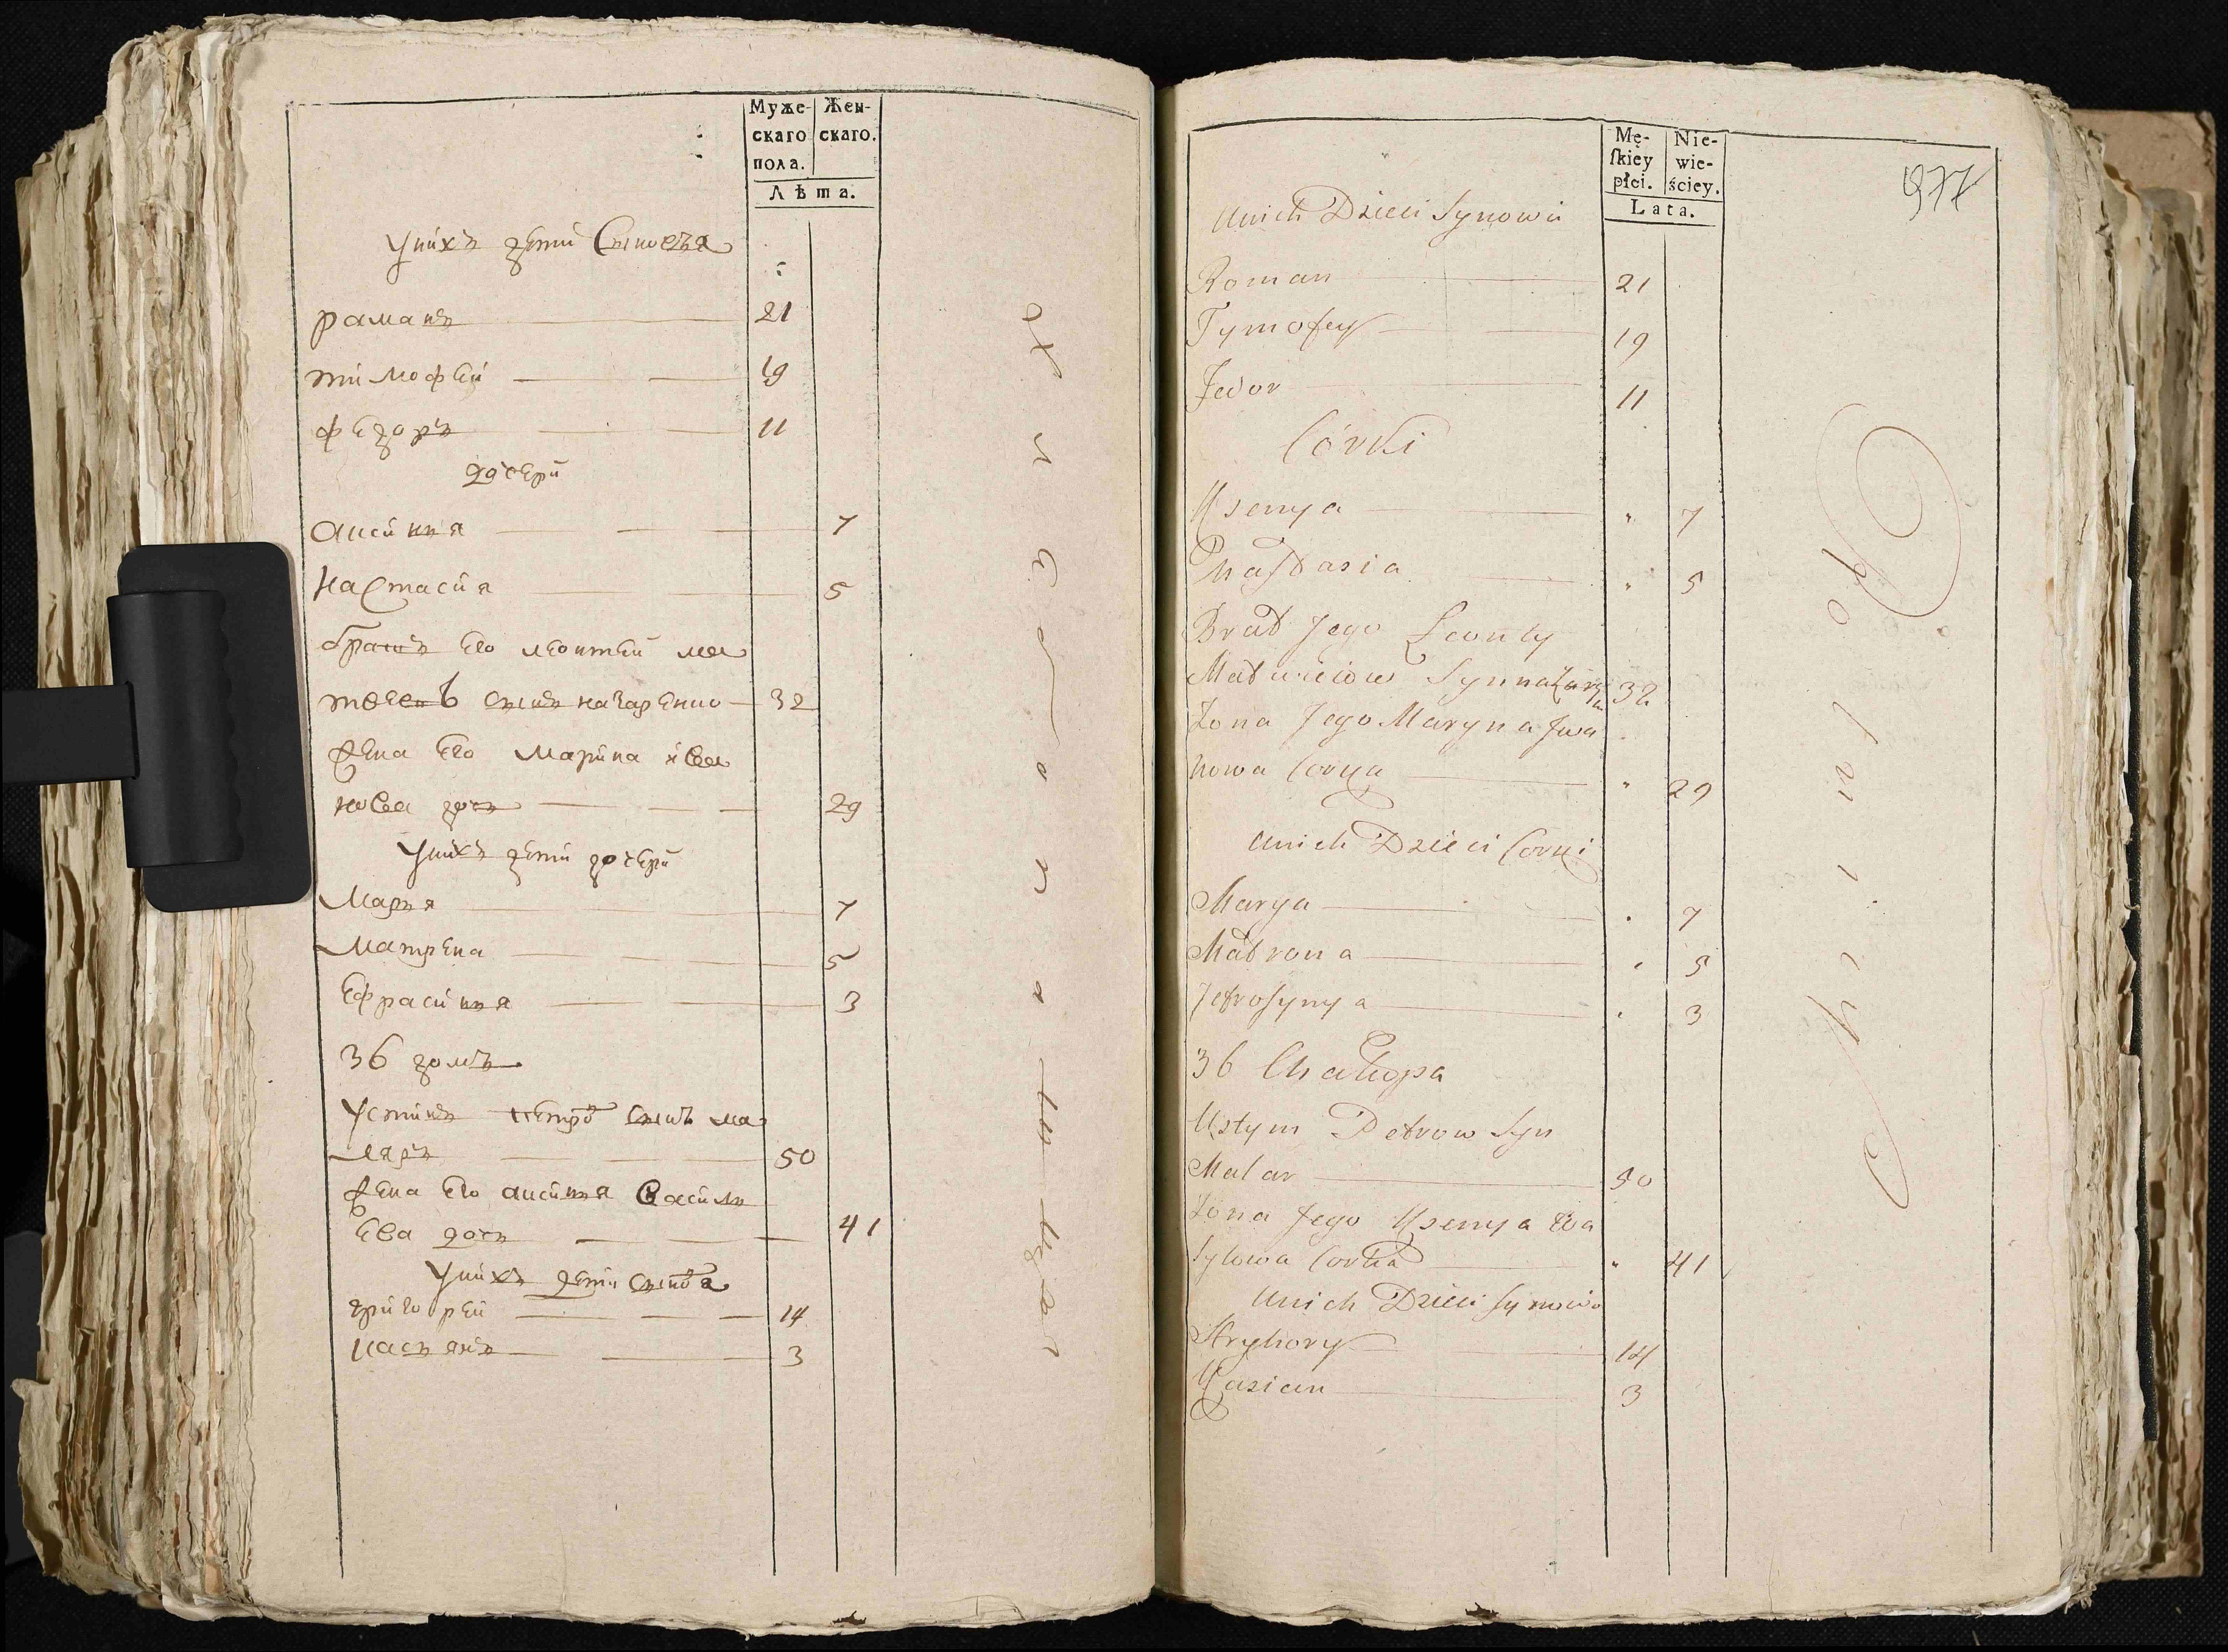 Муже-
скаго
пола.
Жен-
скаго.
Лѣта.
Унихъ дети Сыновъя
раманъ 21
тимофей 19
федоръ 11
дочери
аксинъя 7
настасия 5
братъ его леонтей ма
твеевъ сынъ назаренко 32
жена его марина ива
нова дочъ 29
Унихъ дети дочери
Маръя 7
Матрена 5
Ефрасинъя 3
36 домъ
Устинъ петро сынъ ма
ляръ 50
жена его аксинъя василъ
ева дочъ 41
Унихъ дети
григорей 14
касъянъ 3
Mę-
ſkiey
płci.
Nie-
wie-
ściey.
Lata.
977
Unich Dzieci Synowie
Roman 21
Tymofey 19
Fedor 11
Córki
Ksenya " 7
Nastasia " 5
Brat Jego Leonty
Matwieiow Syn 32
Zona Jego Maryna Jwa
nowa Corka " 29
Unich Dzieci Corki
Marya " 7
Matrona " 5
Jefrosynya " 3
36 Chałupa
Ustym Petrow Syn
Malar 50
Zona Jego Ksenya Wa
sylowa Corka " 41
Unich Dzieci Synowie
Hryhory 14
Kasian 3